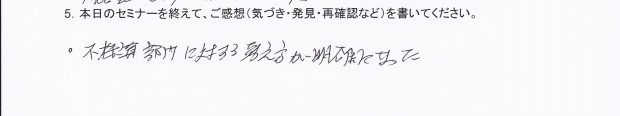 5. 本日のセミナーを終えて、ご感想(気づき・発見・再確認など)を書いてください。
・不採算部門に対する考え方が明確になった